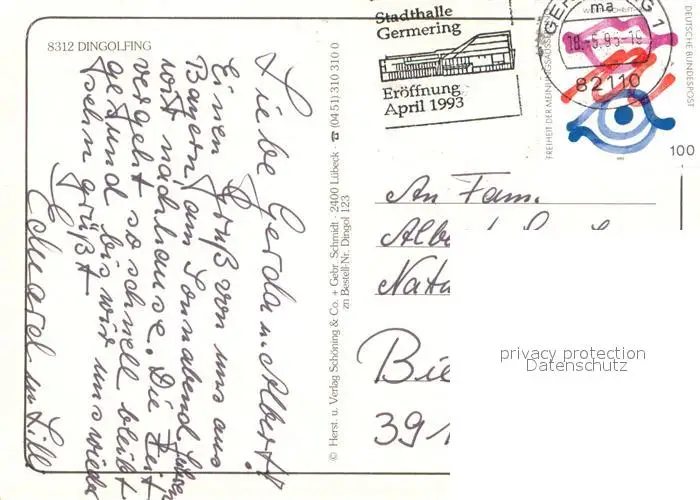 8312 DINGOLFING
Liebe Gerda u. Albert!
Einen Gruß von uns aus
Bayern, am Sonnabend fahren
wir nachhause. Die Zeit
vergeht so schnell bleibt
gesund bis wir uns wieder
sehn grüßt
Eduard u. Lill
© Herst. u. Verlag Schöning & Co. + Gebr. Schmidt · 2400 Lübeck · ☎ (04 51) 310 310 0
zn Bestell-Nr. Dingol 123
Stadthalle
Germering
Eröffnung
April 1993
GERMERING 1
ma
18.-5.95-18
82110
FREIHEIT DER MEINUNGSÄUSSERUNG
DEUTSCHE BUNDESPOST
100
An Fam.
Bie
391
privacy protection
Datenschutz